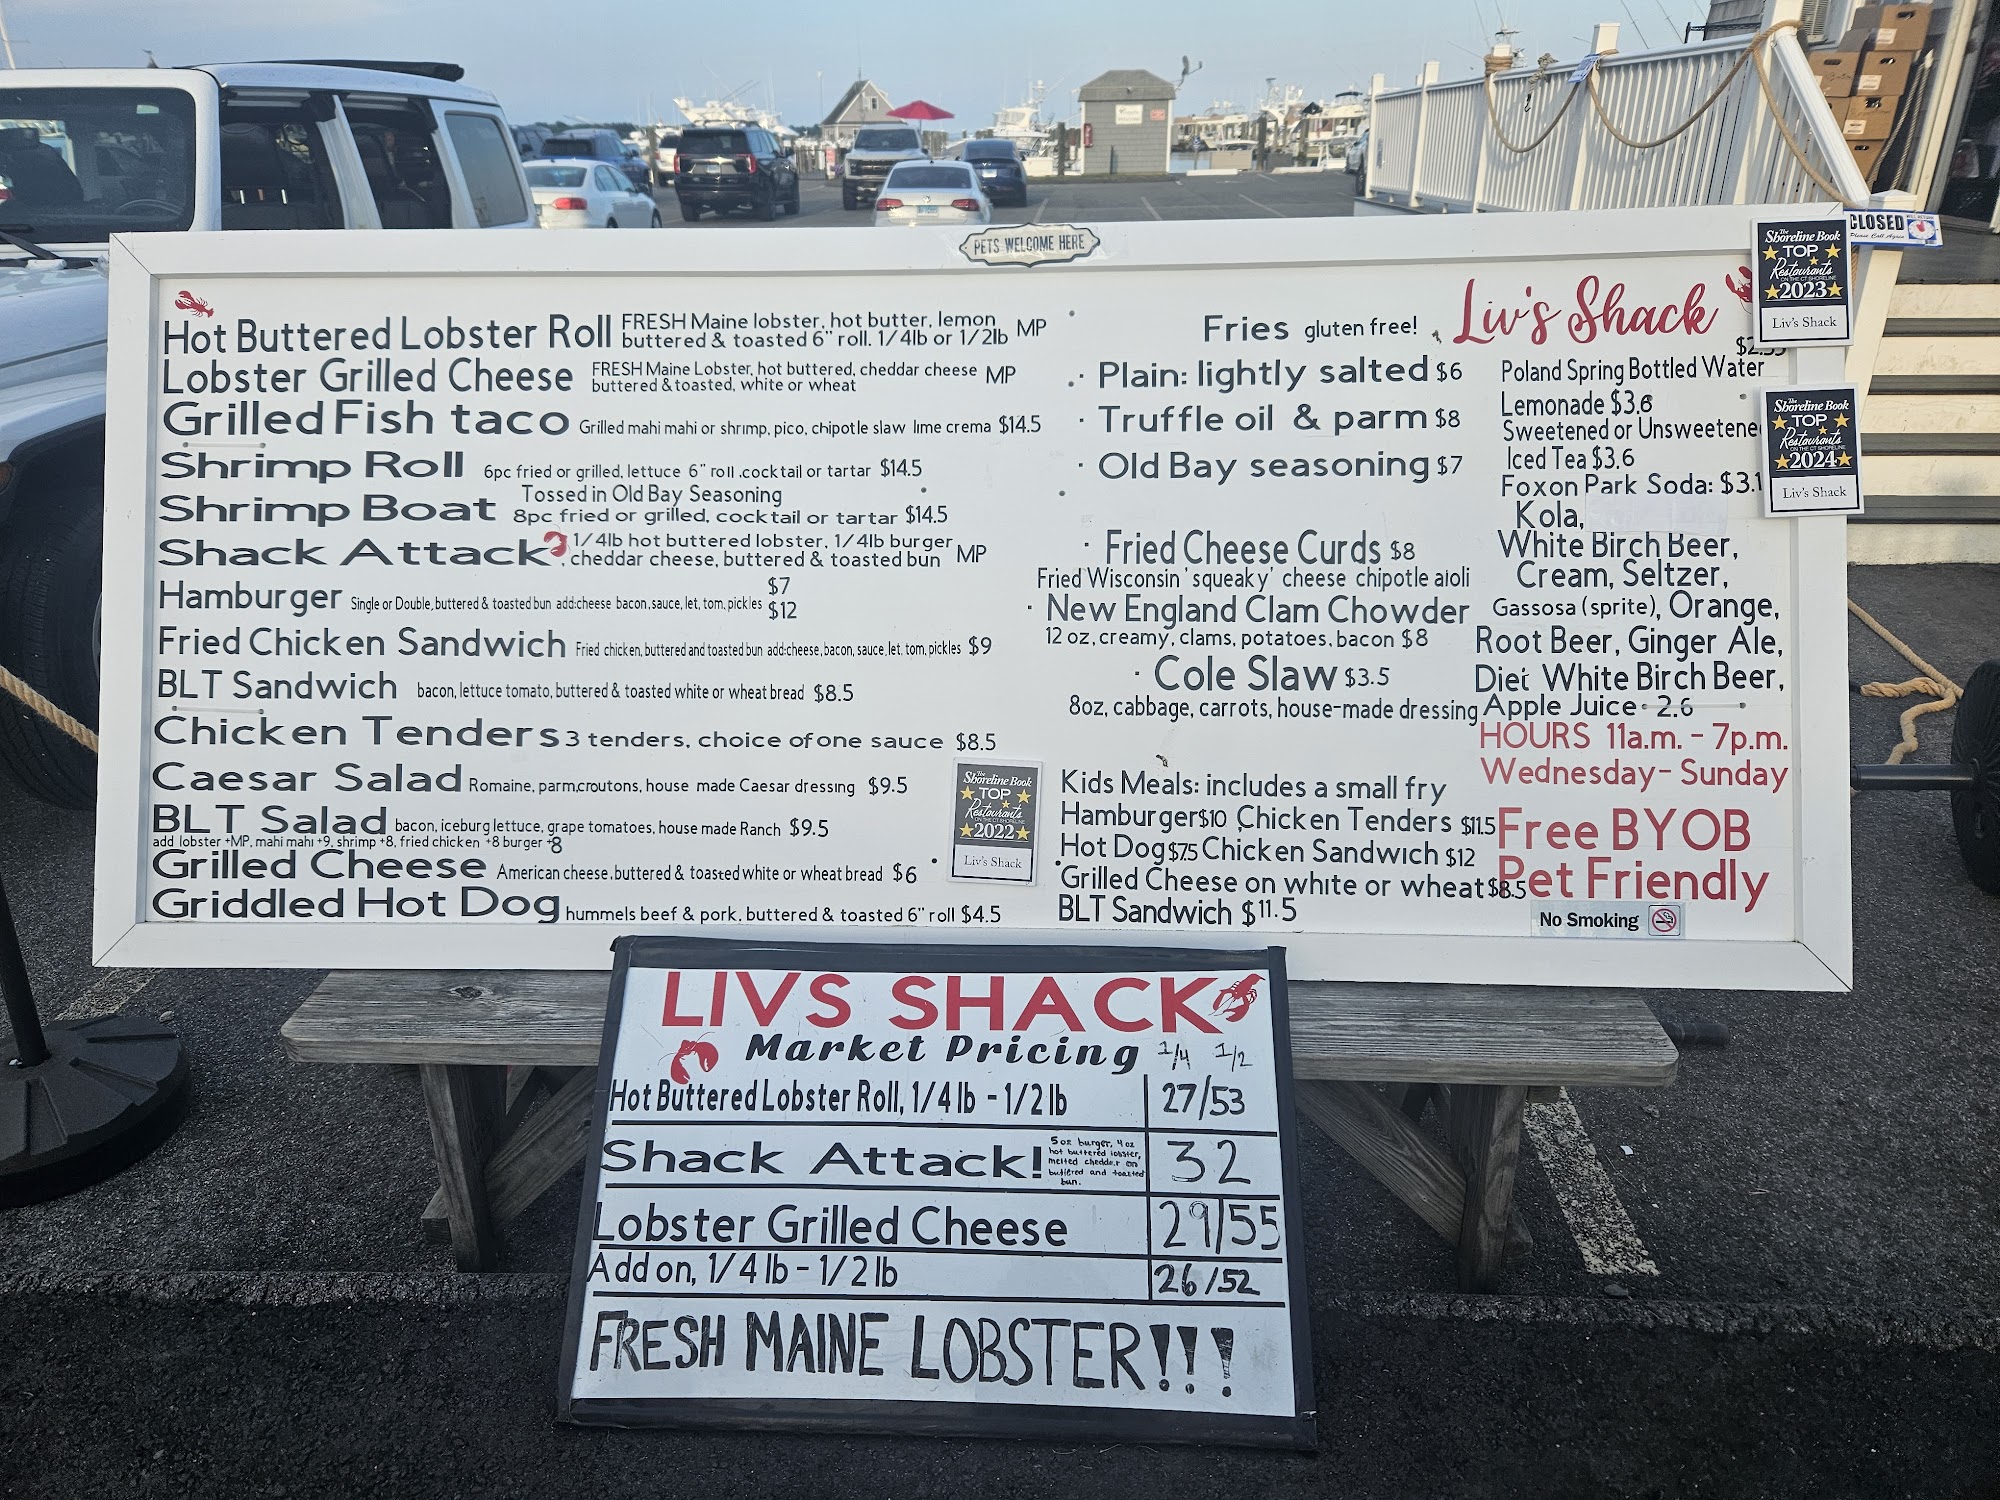 PETS WELCOME HERE
CLOSED
Please Call Again
Hot Buttered Lobster Roll FRESH Maine lobster, hot butter, lemon
buttered & toasted 6" roll. 1/4lb or 1/2lb MP
Lobster Grilled Cheese FRESH Maine Lobster, hot buttered, cheddar cheese
buttered & toasted, white or wheat MP
Grilled Fish taco Grilled mahi mahi or shrimp, pico, chipotle slaw lime crema $14.5
Shrimp Roll 6pc fried or grilled, lettuce 6" roll .cocktail or tartar $14.5
Shrimp Boat Tossed in Old Bay Seasoning
8pc fried or grilled, cocktail or tartar $14.5
Shack Attack 1/4lb hot buttered lobster, 1/4lb burger
cheddar cheese, buttered & toasted bun MP
Hamburger Single or Double, buttered & toasted bun add:cheese bacon, sauce, let, tom, pickles $7
$12
Fried Chicken Sandwich Fried chicken, buttered and toasted bun add:cheese, bacon, sauce, let, tom, pickles $9
BLT Sandwich bacon, lettuce tomato, buttered & toasted white or wheat bread $8.5
Chicken Tenders 3 tenders, choice of one sauce $8.5
Caesar Salad Romaine, parm,croutons, house made Caesar dressing $9.5
BLT Salad bacon, iceburg lettuce, grape tomatoes, house made Ranch $9.5
add lobster +MP, mahi mahi +9, shrimp +8, fried chicken +8 burger +8
Grilled Cheese American cheese, buttered & toasted white or wheat bread $6
Griddled Hot Dog hummels beef & pork, buttered & toasted 6" roll $4.5
The Shoreline Book
TOP
Restaurants
ON THE CT SHORELINE
2022
Liv's Shack
Fries gluten free!
· Plain: lightly salted $6
· Truffle oil & parm $8
· Old Bay seasoning $7
· Fried Cheese Curds $8
Fried Wisconsin 'squeaky' cheese chipotle aioli
· New England Clam Chowder
12 oz, creamy, clams, potatoes, bacon $8
· Cole Slaw $3.5
8oz, cabbage, carrots, house-made dressing
Kids Meals: includes a small fry
Hamburger $10 Chicken Tenders $11.5
Hot Dog $7.5 Chicken Sandwich $12
Grilled Cheese on white or wheat $8.5
BLT Sandwich $11.5
Liv's Shack
Poland Spring Bottled Water
Lemonade $3.6
Sweetened or Unsweetene
Iced Tea $3.6
Foxon Park Soda: $3.1
Kola,
White Birch Beer,
Cream, Seltzer,
Gassosa (sprite), Orange,
Root Beer, Ginger Ale,
Diet White Birch Beer,
Apple Juice 2.6
HOURS 11a.m. - 7p.m.
Wednesday - Sunday
Free BYOB
Pet Friendly
No Smoking
The Shoreline Book
TOP
Restaurants
ON THE CT SHORELINE
2023
Liv's Shack
The Shoreline Book
TOP
Restaurants
ON THE CT SHORELINE
2024
Liv's Shack
LIVS SHACK
Market Pricing 1/4 1/2
Hot Buttered Lobster Roll, 1/4 lb - 1/2 lb 27/53
Shack Attack! 5 oz burger, 4 oz
hot buttered lobster,
melted cheddar on
buttered and toasted
bun. 32
Lobster Grilled Cheese 29/55
Add on, 1/4 lb - 1/2 lb 26/52
FRESH MAINE LOBSTER!!!